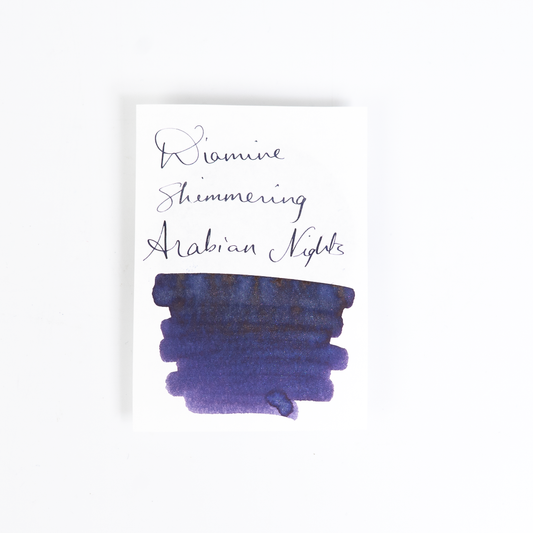 Diamine
Shimmering
Arabian Nights